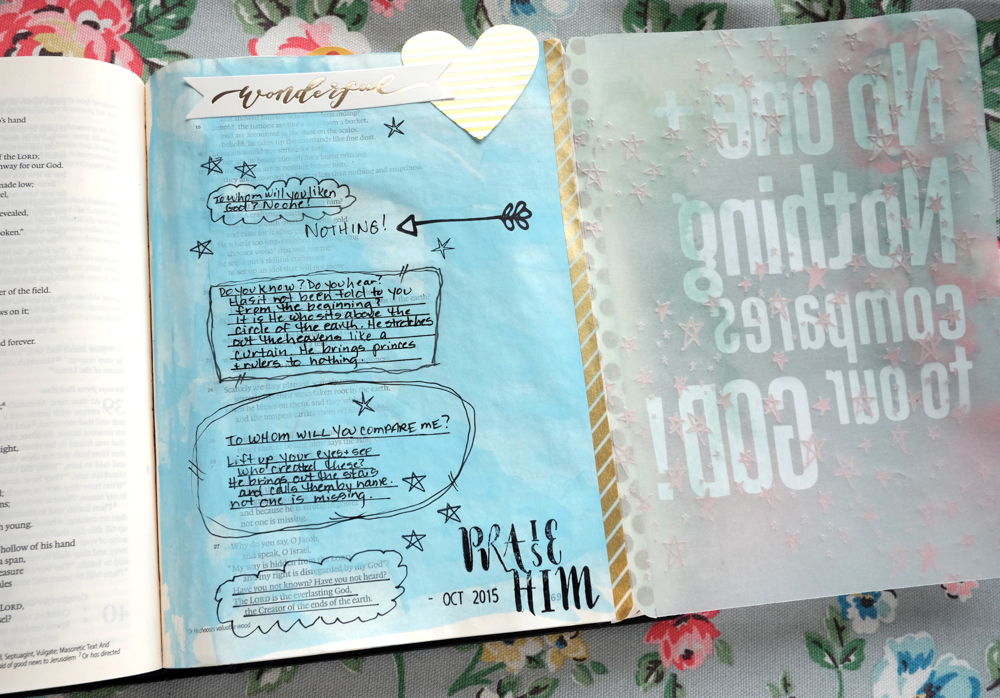 's hand
of the LORD;
hway for our God.
made low;
el,
revealed,
oken."
er of the field.
ws on it;
nd forever.
ight,
n young.
hollow of his hand
a span,
easure
ales
LORD,
sel?
ll, Septuagint, Vulgate; Masoretic Text And
ald of good news to Jerusalem 7 Or has directed
wonderful
To whom will you liken
God? No one! him?
NOTHING!
Do you know? Do you hear?
Has it not been told to you
from the beginning?
It is He who sits above the
circle of the earth. He stretches
out the heavens like a
curtain. He brings princes
+ rulers to nothing.
Scarcely are they
taken root in the earth,
TO WHOM WILL YOU COMPARE ME?
Lift up your eyes + see
who created these?
He brings out the stars
and calls them by name.
not one is missing.
and because he is
not one is missing.
27 Why do you say, O Jacob,
and speak, O Israel,
"My way is hidden from
and my right is disregarded by my God"?
Have you not known? Have you not heard?
The LORD is the everlasting God,
the Creator of the ends of the earth.
Or He chooses valuable wood
PRAISE
HIM
- OCT 2015
69
No one +
Nothing
compares
to our
GOD!